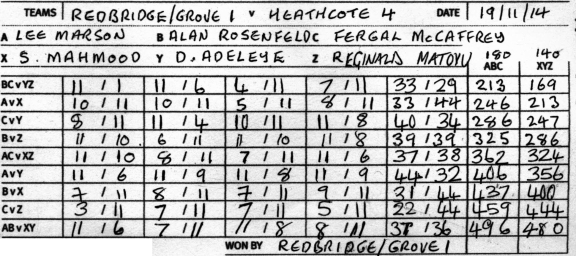 TEAMS REDBRIDGE/GROVE 1 V HEATHCOTE 4 DATE 19/11/14
A LEE MARSON B ALAN ROSENFELD C FERGAL McCAFFREY
X S. MAHMOOD Y D. ADELEYE Z REGINALD MATOVU 180 ABC 140 XYZ
BCvYZ 11/1 11/6 4/11 7/11 33/29 213 169
AvX 10/11 10/11 5/11 8/11 33/44 246 213
CvY 8/11 11/4 10/11 11/8 40/34 286 247
BvZ 11/10 6/11 11/10 11/8 39/39 325 286
ACvXZ 11/10 8/11 7/11 11/6 37/38 362 324
AvY 11/6 11/9 11/8 11/9 44/32 406 356
BvX 7/11 8/11 7/11 9/11 31/44 437 400
CvZ 3/11 7/11 7/11 5/11 22/44 459 444
ABvXY 11/6 7/11 11/8 8/11 37/36 496 480
WON BY REDBRIDGE/GROVE 1